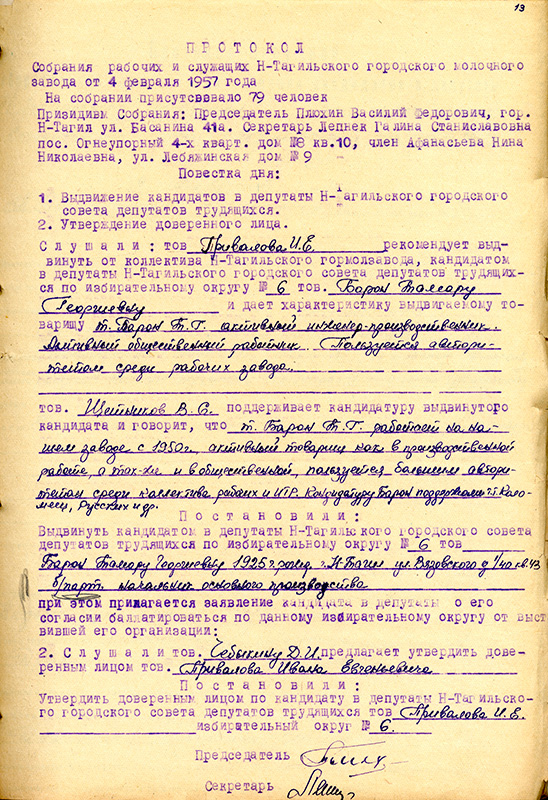 13
ПРОТОКОЛ
Собрания рабочих и служащих Н-Тагильского городского молочного
завода от 4 февраля 1957 года
На собрании присутсвовало 79 человек
Призидиум Собрания: Председатель Плюхин Василий Федорович, гор.
Н-Тагил ул. Басанина 41а. Секретарь Лепнек Галина Станиславовна
пос. Огнеупорный 4-х кварт. дом №8 кв.10, член Афанасьева Нина
Николаевна, ул. Лебяжинская дом №9
Повестка дня:
1. Выдвижение кандидатов в депутаты Н-Тагильского городского
совета депутатов трудящихся.
2. Утверждение доверенного лица.
Слушали: тов Привалова И.Е. рекомендует выд-
винуть от коллектива Н-Тагильского гормолзавода, кандидатом
в депутаты Н-Тагильского городского совета депутатов трудящих-
ся по избирательному округу № 6 тов. Барон Тамару
Георгиевну и дает характеристику выдвигаемому то-
варищу т. Барон Т.Г. активный инженер-производственник.
Активный общественный работник. Пользуется автори-
тетом среди рабочих завода.
тов. Щетников В.С. поддерживает кандидатуру выдвинутого
кандидата и говорит, что т. Барон Т.Г. работает на на-
шем заводе с 1950г., активный товарищ как в производственной
работе, а так-же и в общественной, пользуется большим автори-
тетом среди коллектива рабочих и ИТР. Кандидатуру Барон поддержали т.т. Коло-
меец, Русских и др.
Постановили:
Выдвинуть кандидатом в депутаты Н-Тагильского городского совета
депутатов трудящихся по избирательному округу № 6 тов
Барон Тамару Георгиевну 1925 г. рожд. г. Н-Тагил ул. Вязовского д 1/40 кв. 43
б/парт. начальник основного производства
при этом прилагается заявление кандидата в депутаты о его
согласии баллатироваться по данному избирательному округу от выст
вившей его организации:
2. Слушали тов. Чебыкину Д.И. предлагает утвердить дове-
ренным лицом тов. Привалова Ивана Евгеньевича
Постановили:
Утвердить доверенным лицом по кандидату в депутаты Н-Тагильско-
го городского совета депутатов трудящихся тов Привалова И.Е.
избирательный округ № 6.
Председатель
Секретарь